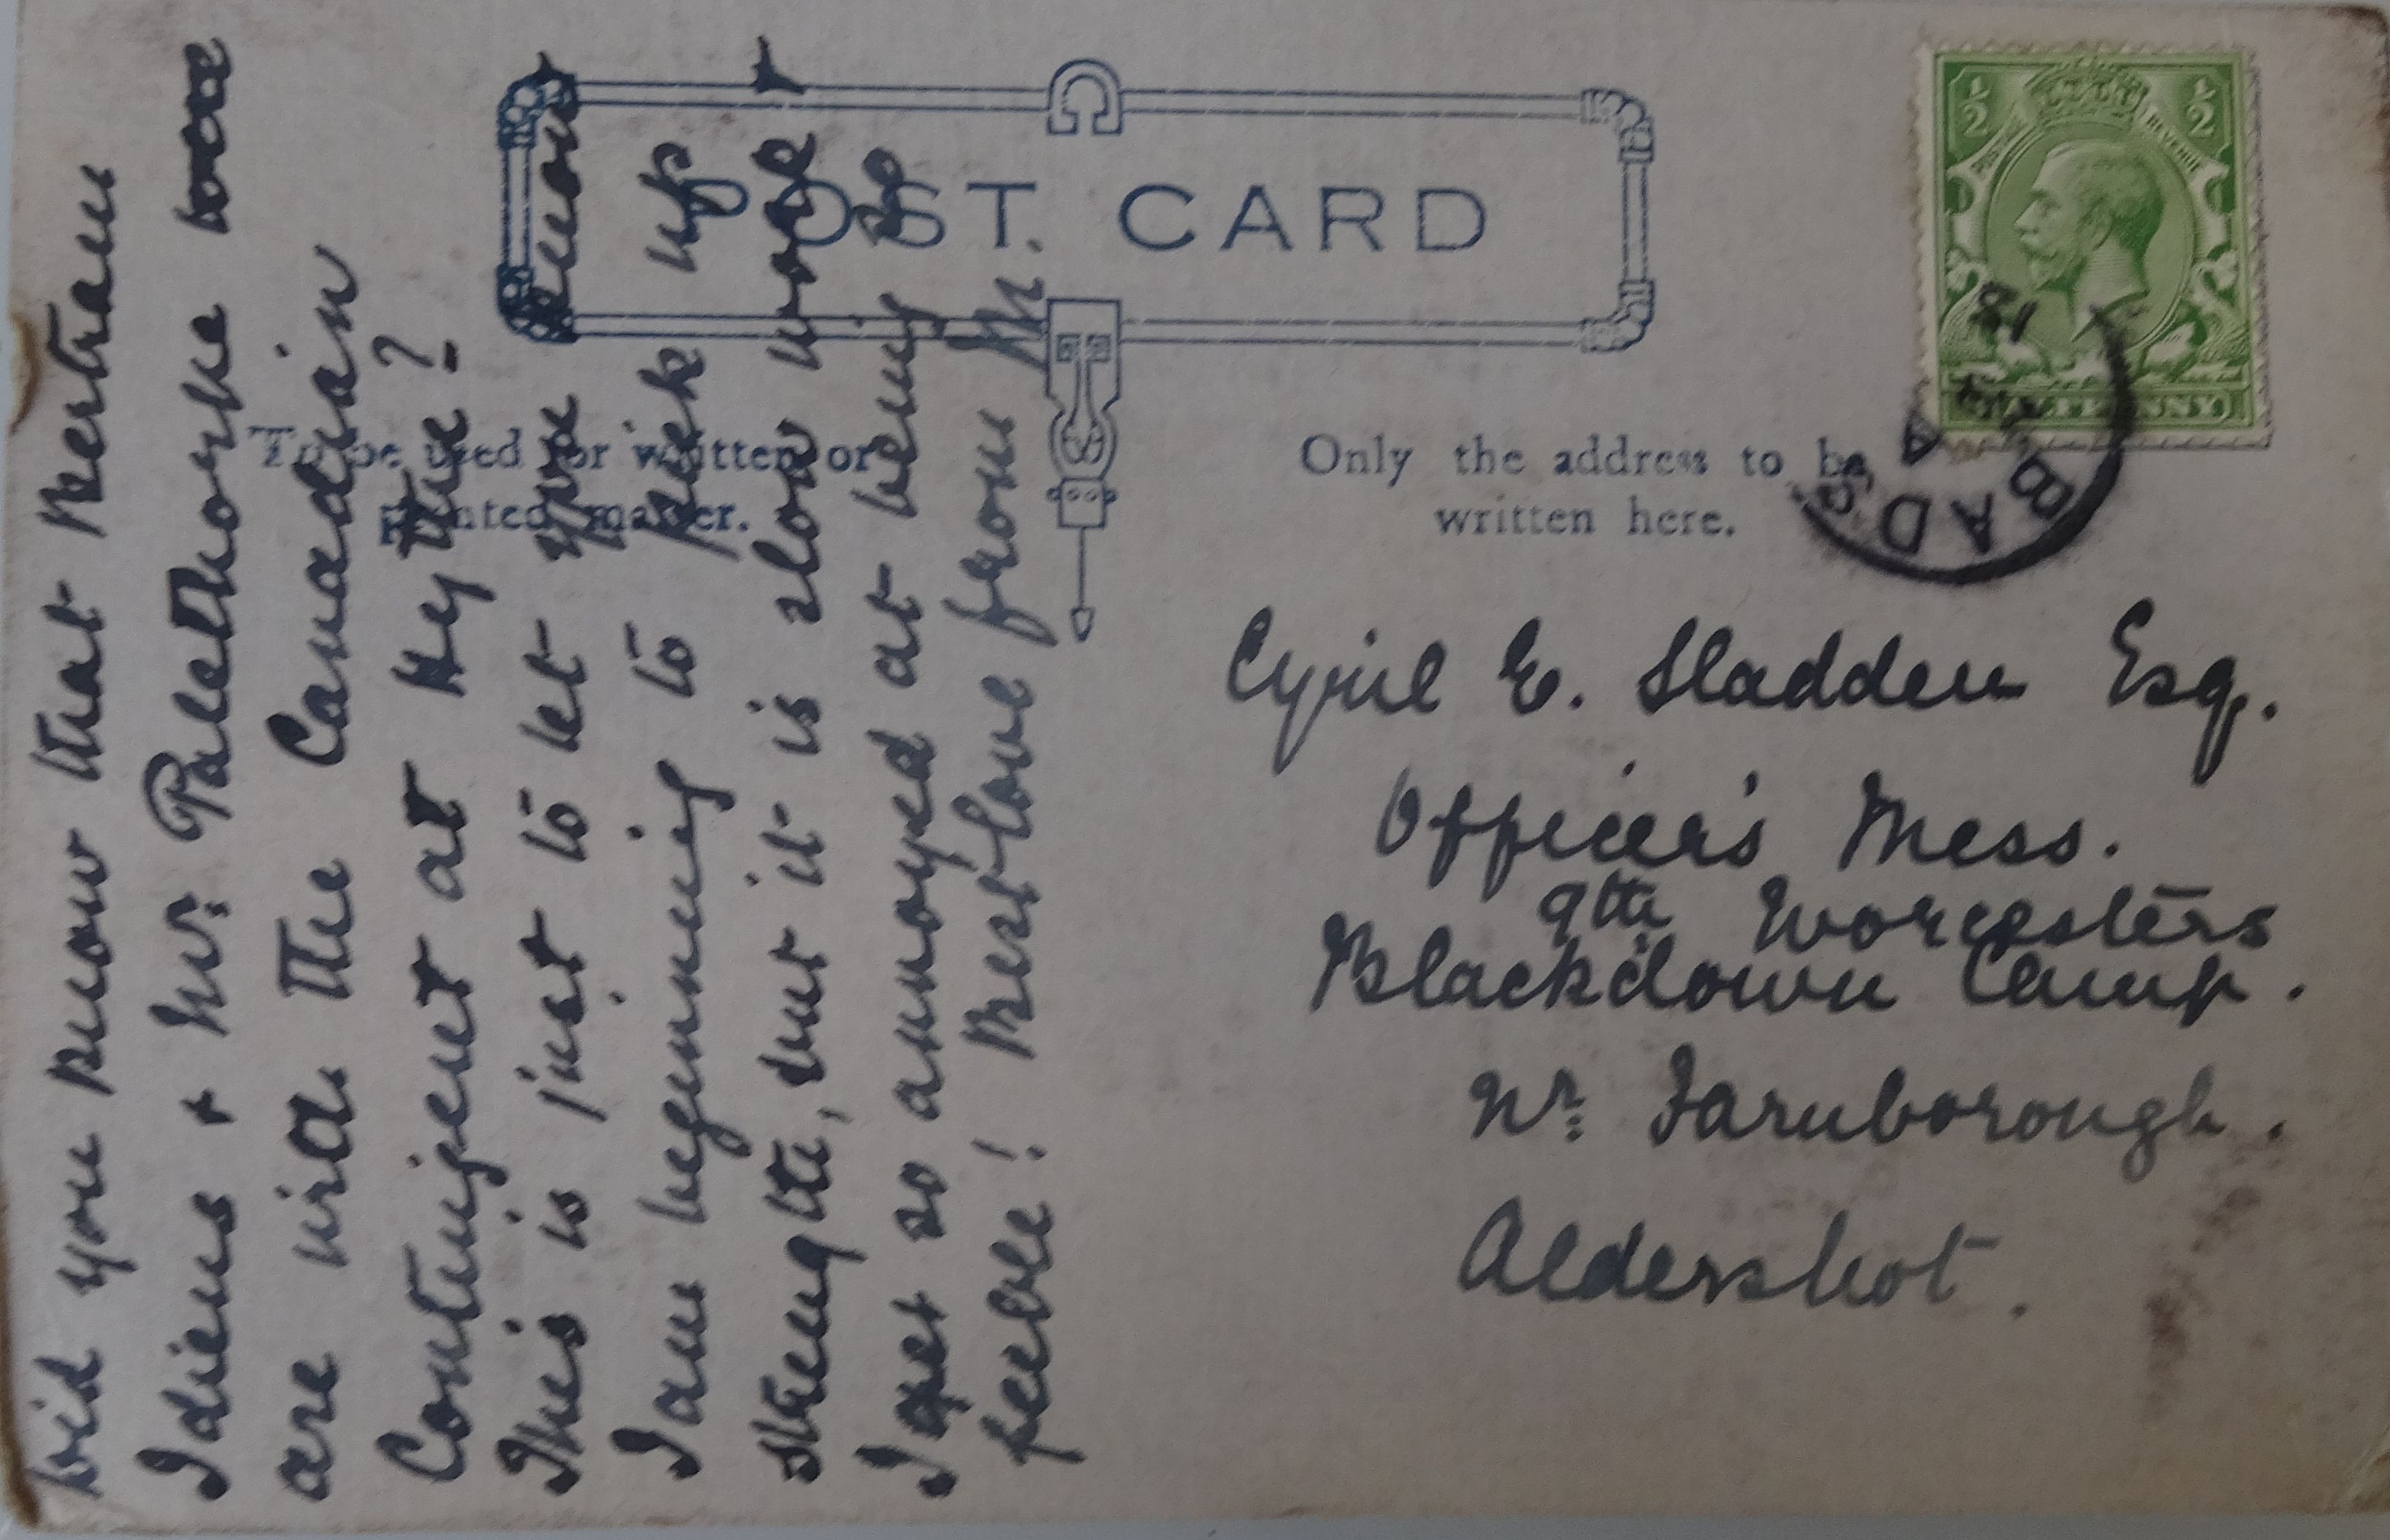 POST CARD
To be used for written or
printed matter.
Only the address to be
written here.
½ ½
POSTAGE REVENUE
HALFPENNY
BADS
Did you know that Bertram
Idiens & Mr. Palethorpe
are with the Canadian
Contingent at Hythe?
This is just to let you know
I am beginning to pick up
strength, but it is slow work &
I get so annoyed at being so
feeble! Best love from M.
Cyril E. Sladden Esq.
Officer's Mess.
9th Worcesters
Blackdown Camp.
Nr. Farnborough.
Aldershot.